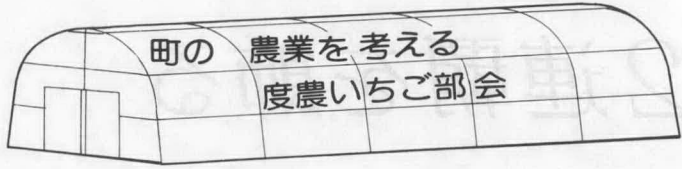 町の 農業を考える
度農いちご部会